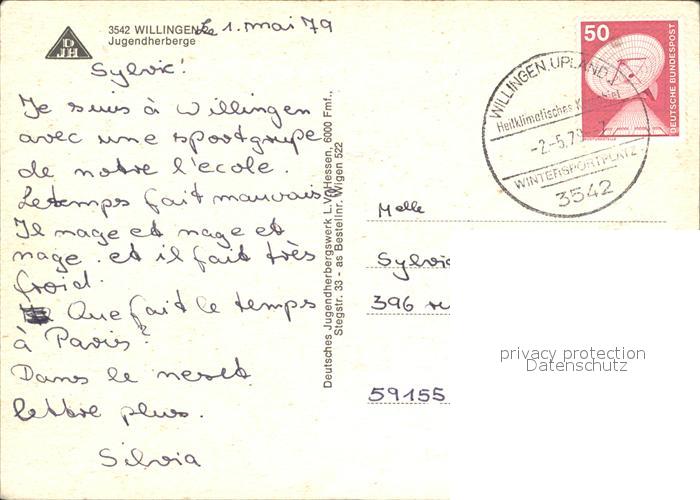 3542 WILLINGEN
Jugendherberge
Le 1. mai 79
Sylvie!
Je suis à Willingen
avec une sportgrupe
de notre l'ecole.
Le temps fait mauvais.
Il nage et nage et
nage. et il fait très
froid.
Que fait le temps
à Paris?
Dans le nexst
lettre plus.
Silvia
Deutsches Jugendherbergswerk L.V. Hessen, 6000 Fmt.,
Stegstr. 33 - as Bestellnr. Wigen 522
50
DEUTSCHE BUNDESPOST
WILLINGEN, UPLAND
Heilklimatisches
-2.-5.79
WINTERSPORTPLATZ
3542
Melle
Sylvie
396
59155
privacy protection
Datenschutz